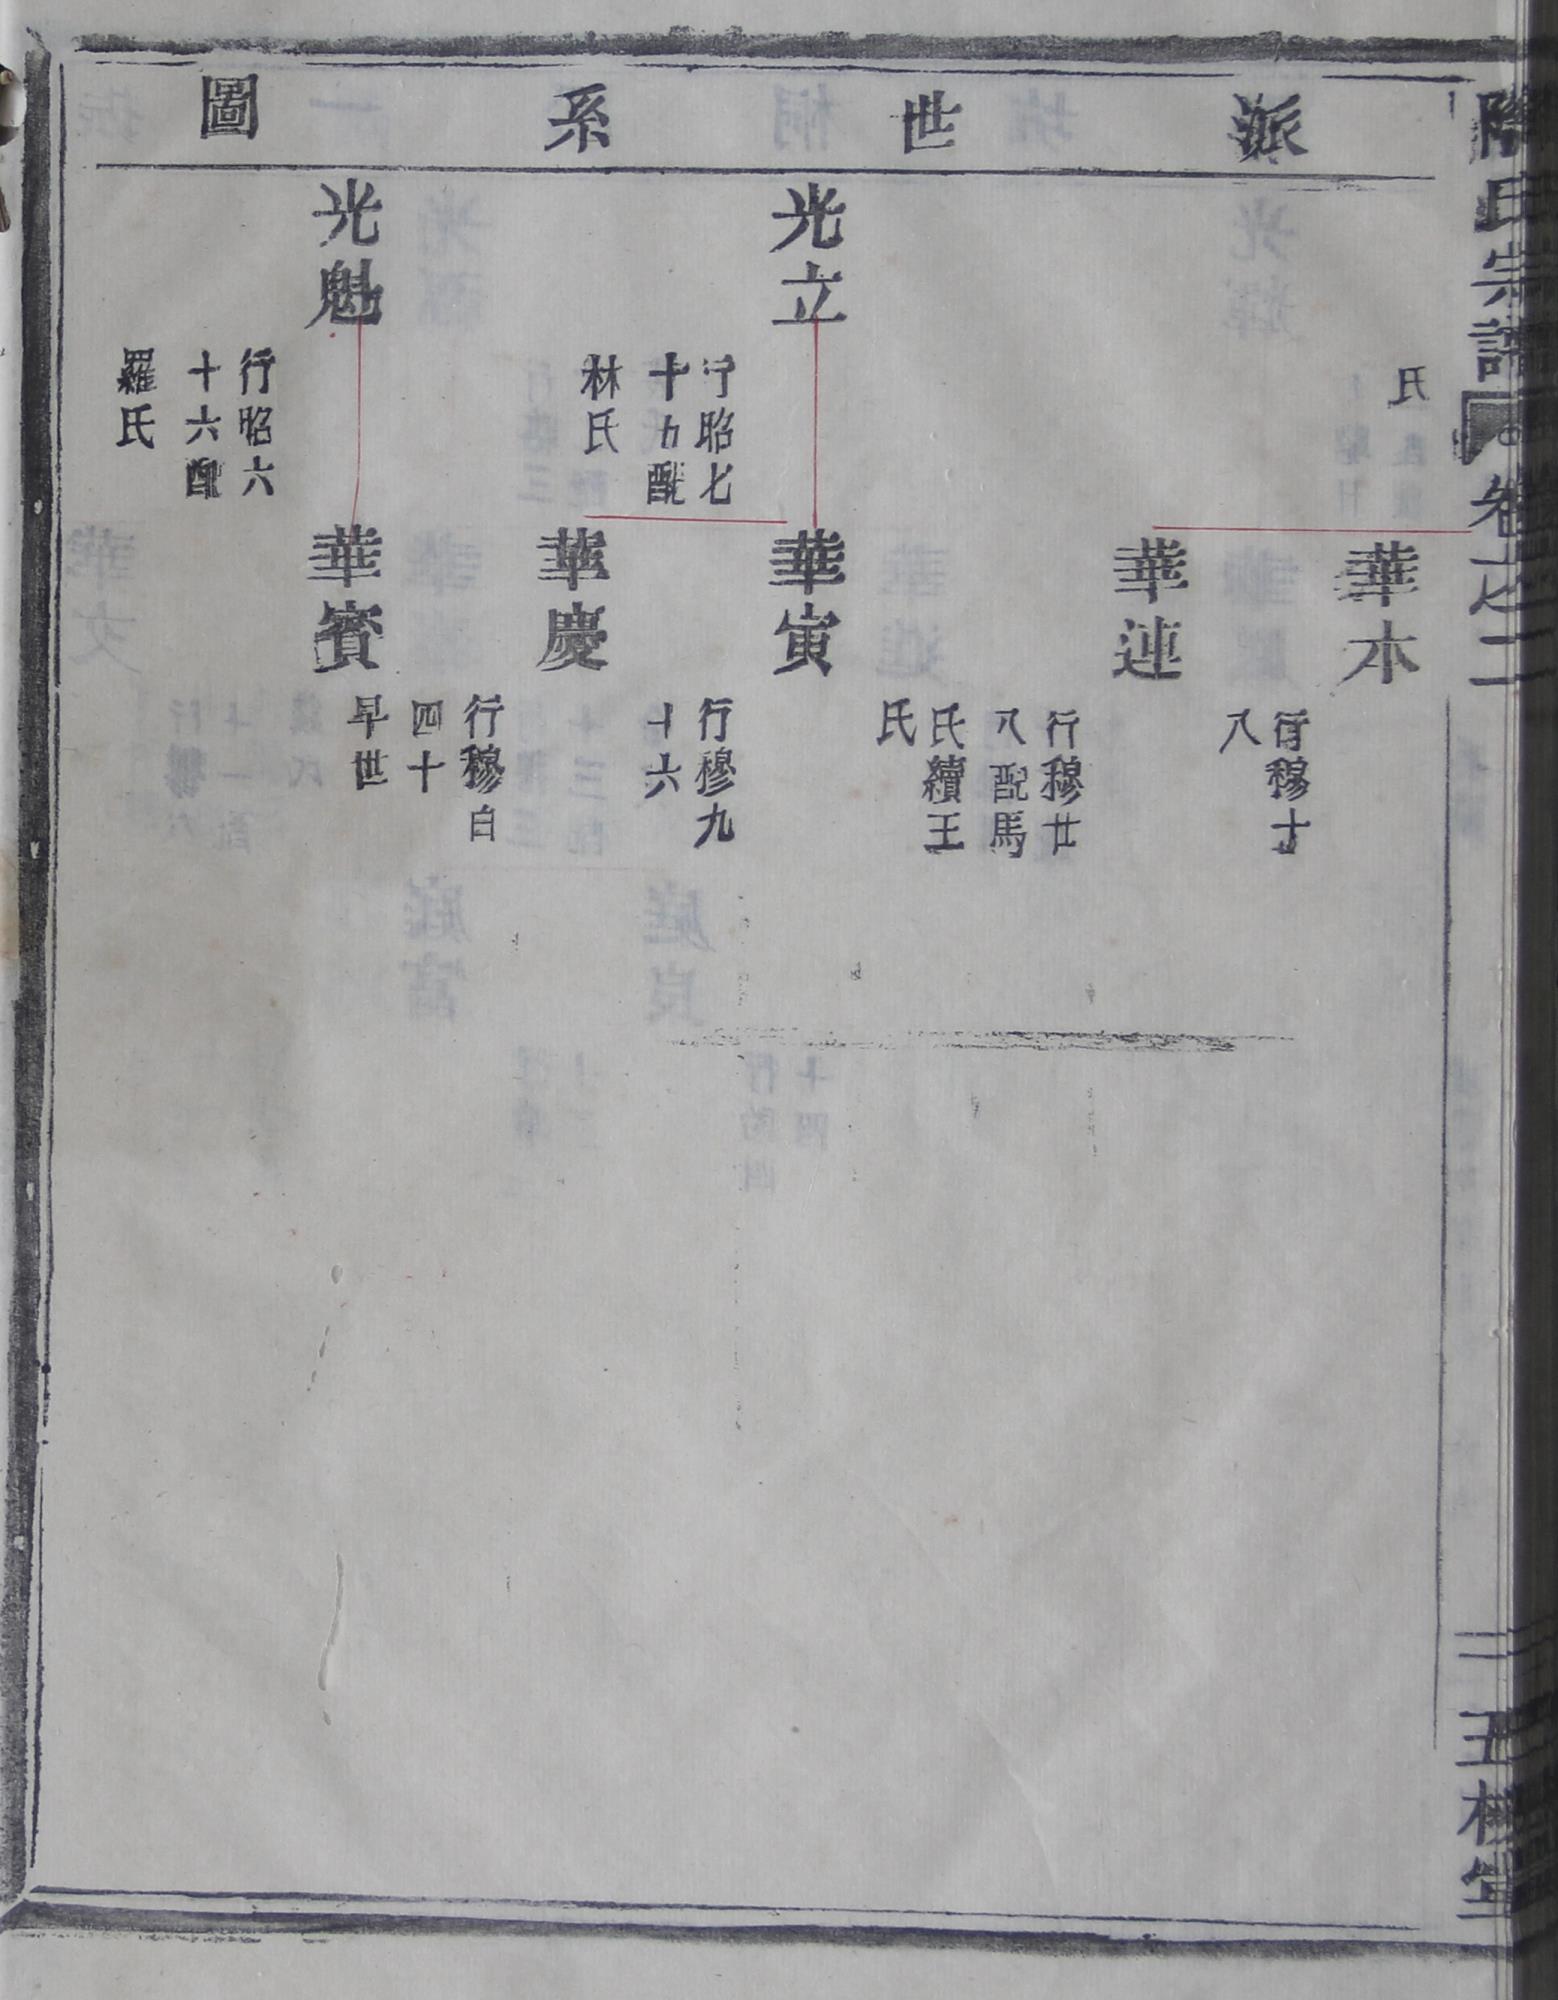 氏宗譜
卷之二
二
派世系圖
氏
華本
行穆十
八
華連
行穆廿
八配馬
氏續王
氏
光立
行昭七
十九配
林氏
華寅
行穆九
十六
華慶
行穆白
四十
早世
光魁
行昭六
十六配
羅氏
華賓